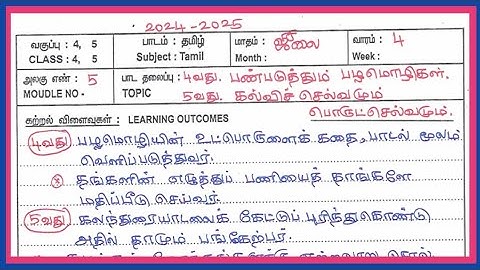 2024-2025
வகுப்பு : 4, 5 பாடம் : தமிழ் மாதம் : ஜூலை வாரம் : 4
CLASS : 4, 5 Subject : Tamil Month : Week :
அலகு எண் : 5 பாட தலைப்பு : 4வது. பண்படுத்தும் பழமொழிகள்.
MOUDLE NO - TOPIC 5வது. கல்விச் செல்வமும்
பொருட்செல்வமும்.
கற்றல் விளைவுகள் : LEARNING OUTCOMES
4வது பழமொழியின் உட்பொருளைக் கதை, பாடல் மூலம்
வெளிப்படுத்துவர்.
* தங்களின் எழுத்துப் பணியைத் தாங்களே
மதிப்பீடு செய்வர்.
5வது கலந்துரையாடலைக் கேட்டுப் புரிந்துகொண்டு
அதில் தாமும் பங்கேற்பர்.